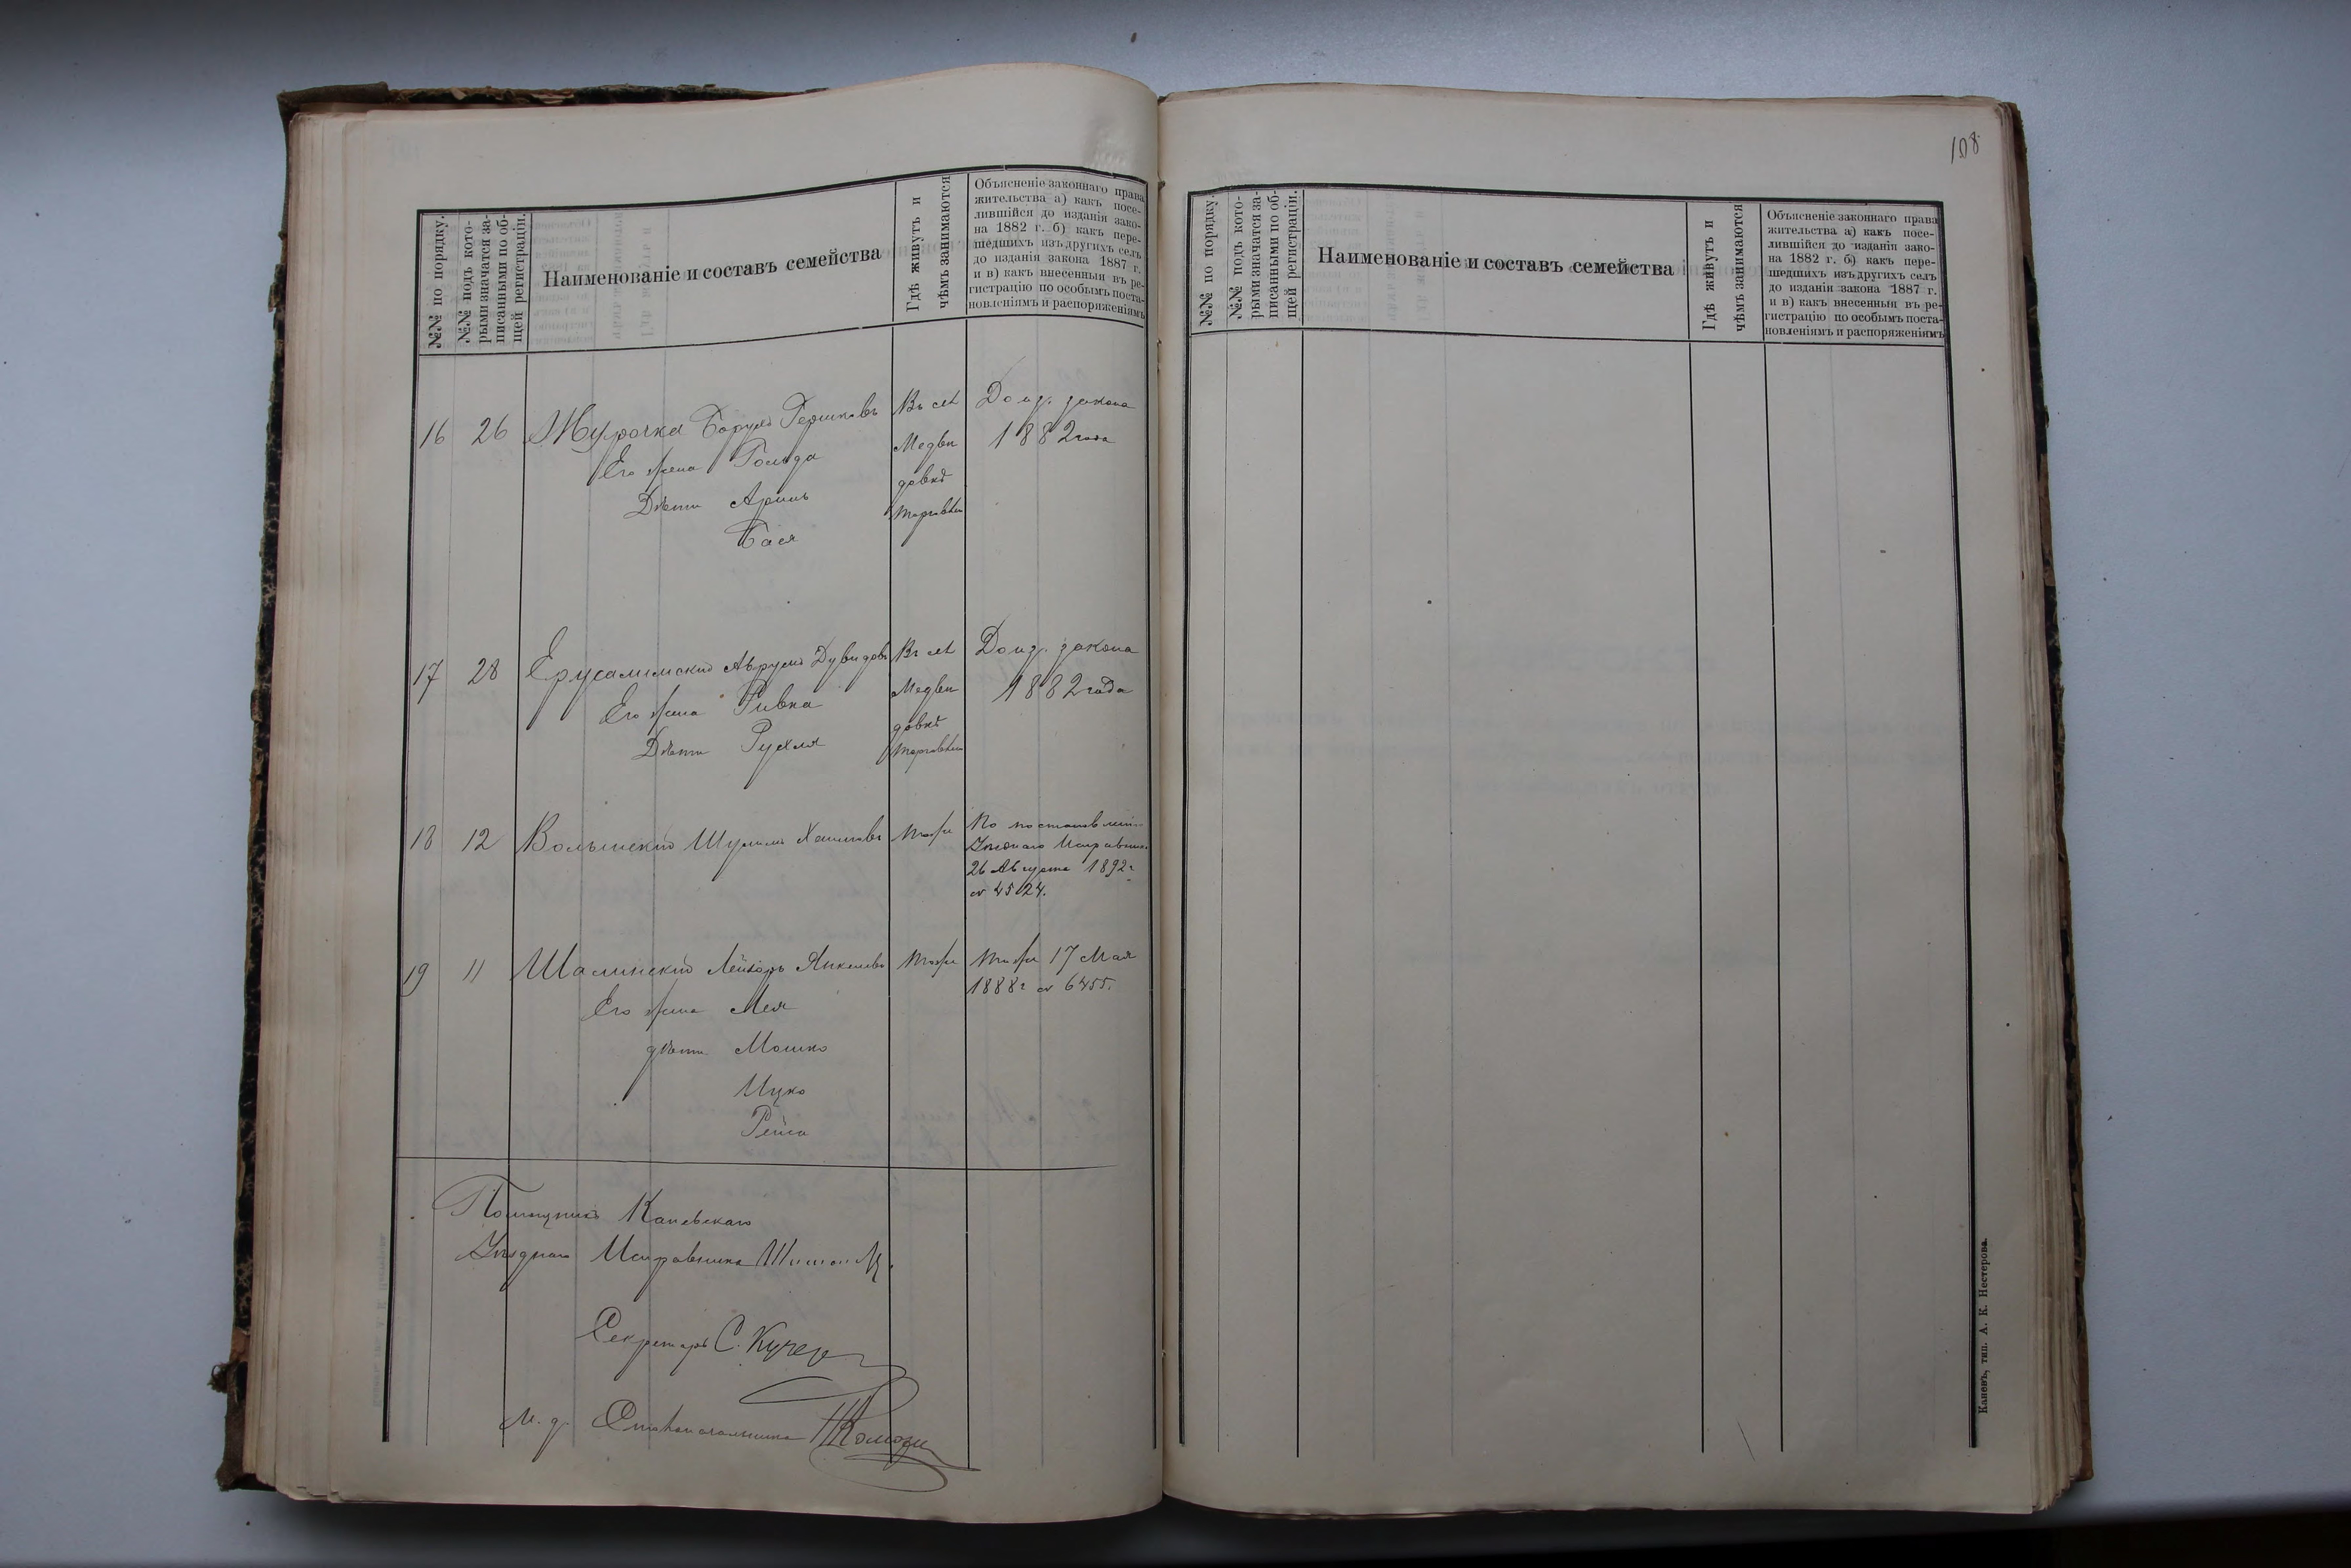 №№ по порядку.
№№ подъ кото-
рыми значатся за-
писанными по об-
щей регистраціи.
Наименованіе и составъ семейства
Гдѣ живутъ и
чѣмъ занимаются
Объясненіе законнаго права
жительства а) какъ посе-
лившійся до изданія зако-
на 1882 г. б) какъ пере-
шедшихъ изъ другихъ селъ
до изданія закона 1887 г.
и в) какъ внесенныи въ ре-
гистрацію по особымъ поста-
новленіямъ и распоряженіямъ
16 26 Журочка Борухъ Гершковъ
Его жена Гольда
Дѣти Аринь
Бася
Въ се
Медви
довкѣ
торговлей
До изд. закона
1882 года
17 28 Ерусалимскій Аврумъ Дувидовъ
Его жена Ривка
Дѣти Рухля
Въ се
Медви
довкѣ
торговлей
До изд. закона
1882 года
18 12 Волынскій Шулимъ Хаимовъ
тоже
По постановленію
Уѣзднаго Исправника
26 Августа 1892 г
№ 4524.
19 11 Шалинскій Лейзоръ Янкелевъ
Его жена Лея
дѣти Мошко
Ицко
Рейса
тоже
тоже 17 Мая
1888 г № 6455.
Помощникъ Каневскаго
Уѣзднаго Исправника
Секретарь С. Кучер
И. д. Столоначальника
108
№№ по порядку.
№№ подъ кото-
рыми значатся за-
писанными по об-
щей регистраціи.
Наименованіе и составъ семейства
Гдѣ живутъ и
чѣмъ занимаются
Объясненіе законнаго права
жительства а) какъ посе-
лившійся до изданія зако-
на 1882 г. б) какъ пере-
шедшихъ изъ другихъ селъ
до изданіи закона 1887 г.
и в) какъ внесенныи въ ре-
гистрацію по особымъ поста-
новленіямъ и распоряженіямъ
Каневъ, тип. А. К. Нестерова.